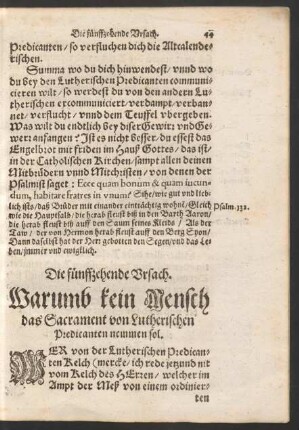 Die fünffzehende Ursach. 49
Predicanten / so verfluchen dich die Altcalende-
rischen.
Summa wo du dich hinwendest / vnnd wo
du bey den Lutherischen Predicanten communi-
cieren wilt / so werdest du von den andern Lu-
therischen excommuniciert / verdampt / verban-
net / verflucht / vnnd dem Teuffel vbergeben.
Was wilt du endtlich bey diser Gewirz vnd Ge-
werr anfangen? Ist es nicht besser / du essest das
Engelbrot mit friden im Hauß Gottes / das ist /
in der Catholischen Kirchen / sampt allen deinen
Mitbrüdern vnnd Mitchristen / von denen der
Psalmist saget: Ecce quam bonum & quam iucun-
dum, habitare fratres in vnum: Sihe / wie gut vnd lieb-
lich ists / daß Brüder mit einander einträchtig wohnē / Gleich Psalm. 132.
wie die Hauptsalb / die herab fleust biß in den Barth Aaron /
die herab fleust biß auff den Saum seines Kleids / Als der
Taw / der von Hermon herab fleust auff den Berg Syon /
Dann daselbst hat der Herr gebotten den Segen / vnd das Le-
ben / jmmer vnd ewigklich.
Die fünffzehende Ursach.
Warumb kein Mensch
das Sacrament von Lutherischen
Predicanten nemmen sol.
WER von der Lutherischen Predican-
ten Kelch (mercke / ich rede jetzund nit
vom Kelch des HErren / welcher im
Ampt der Meß von einem ordinier-
ten